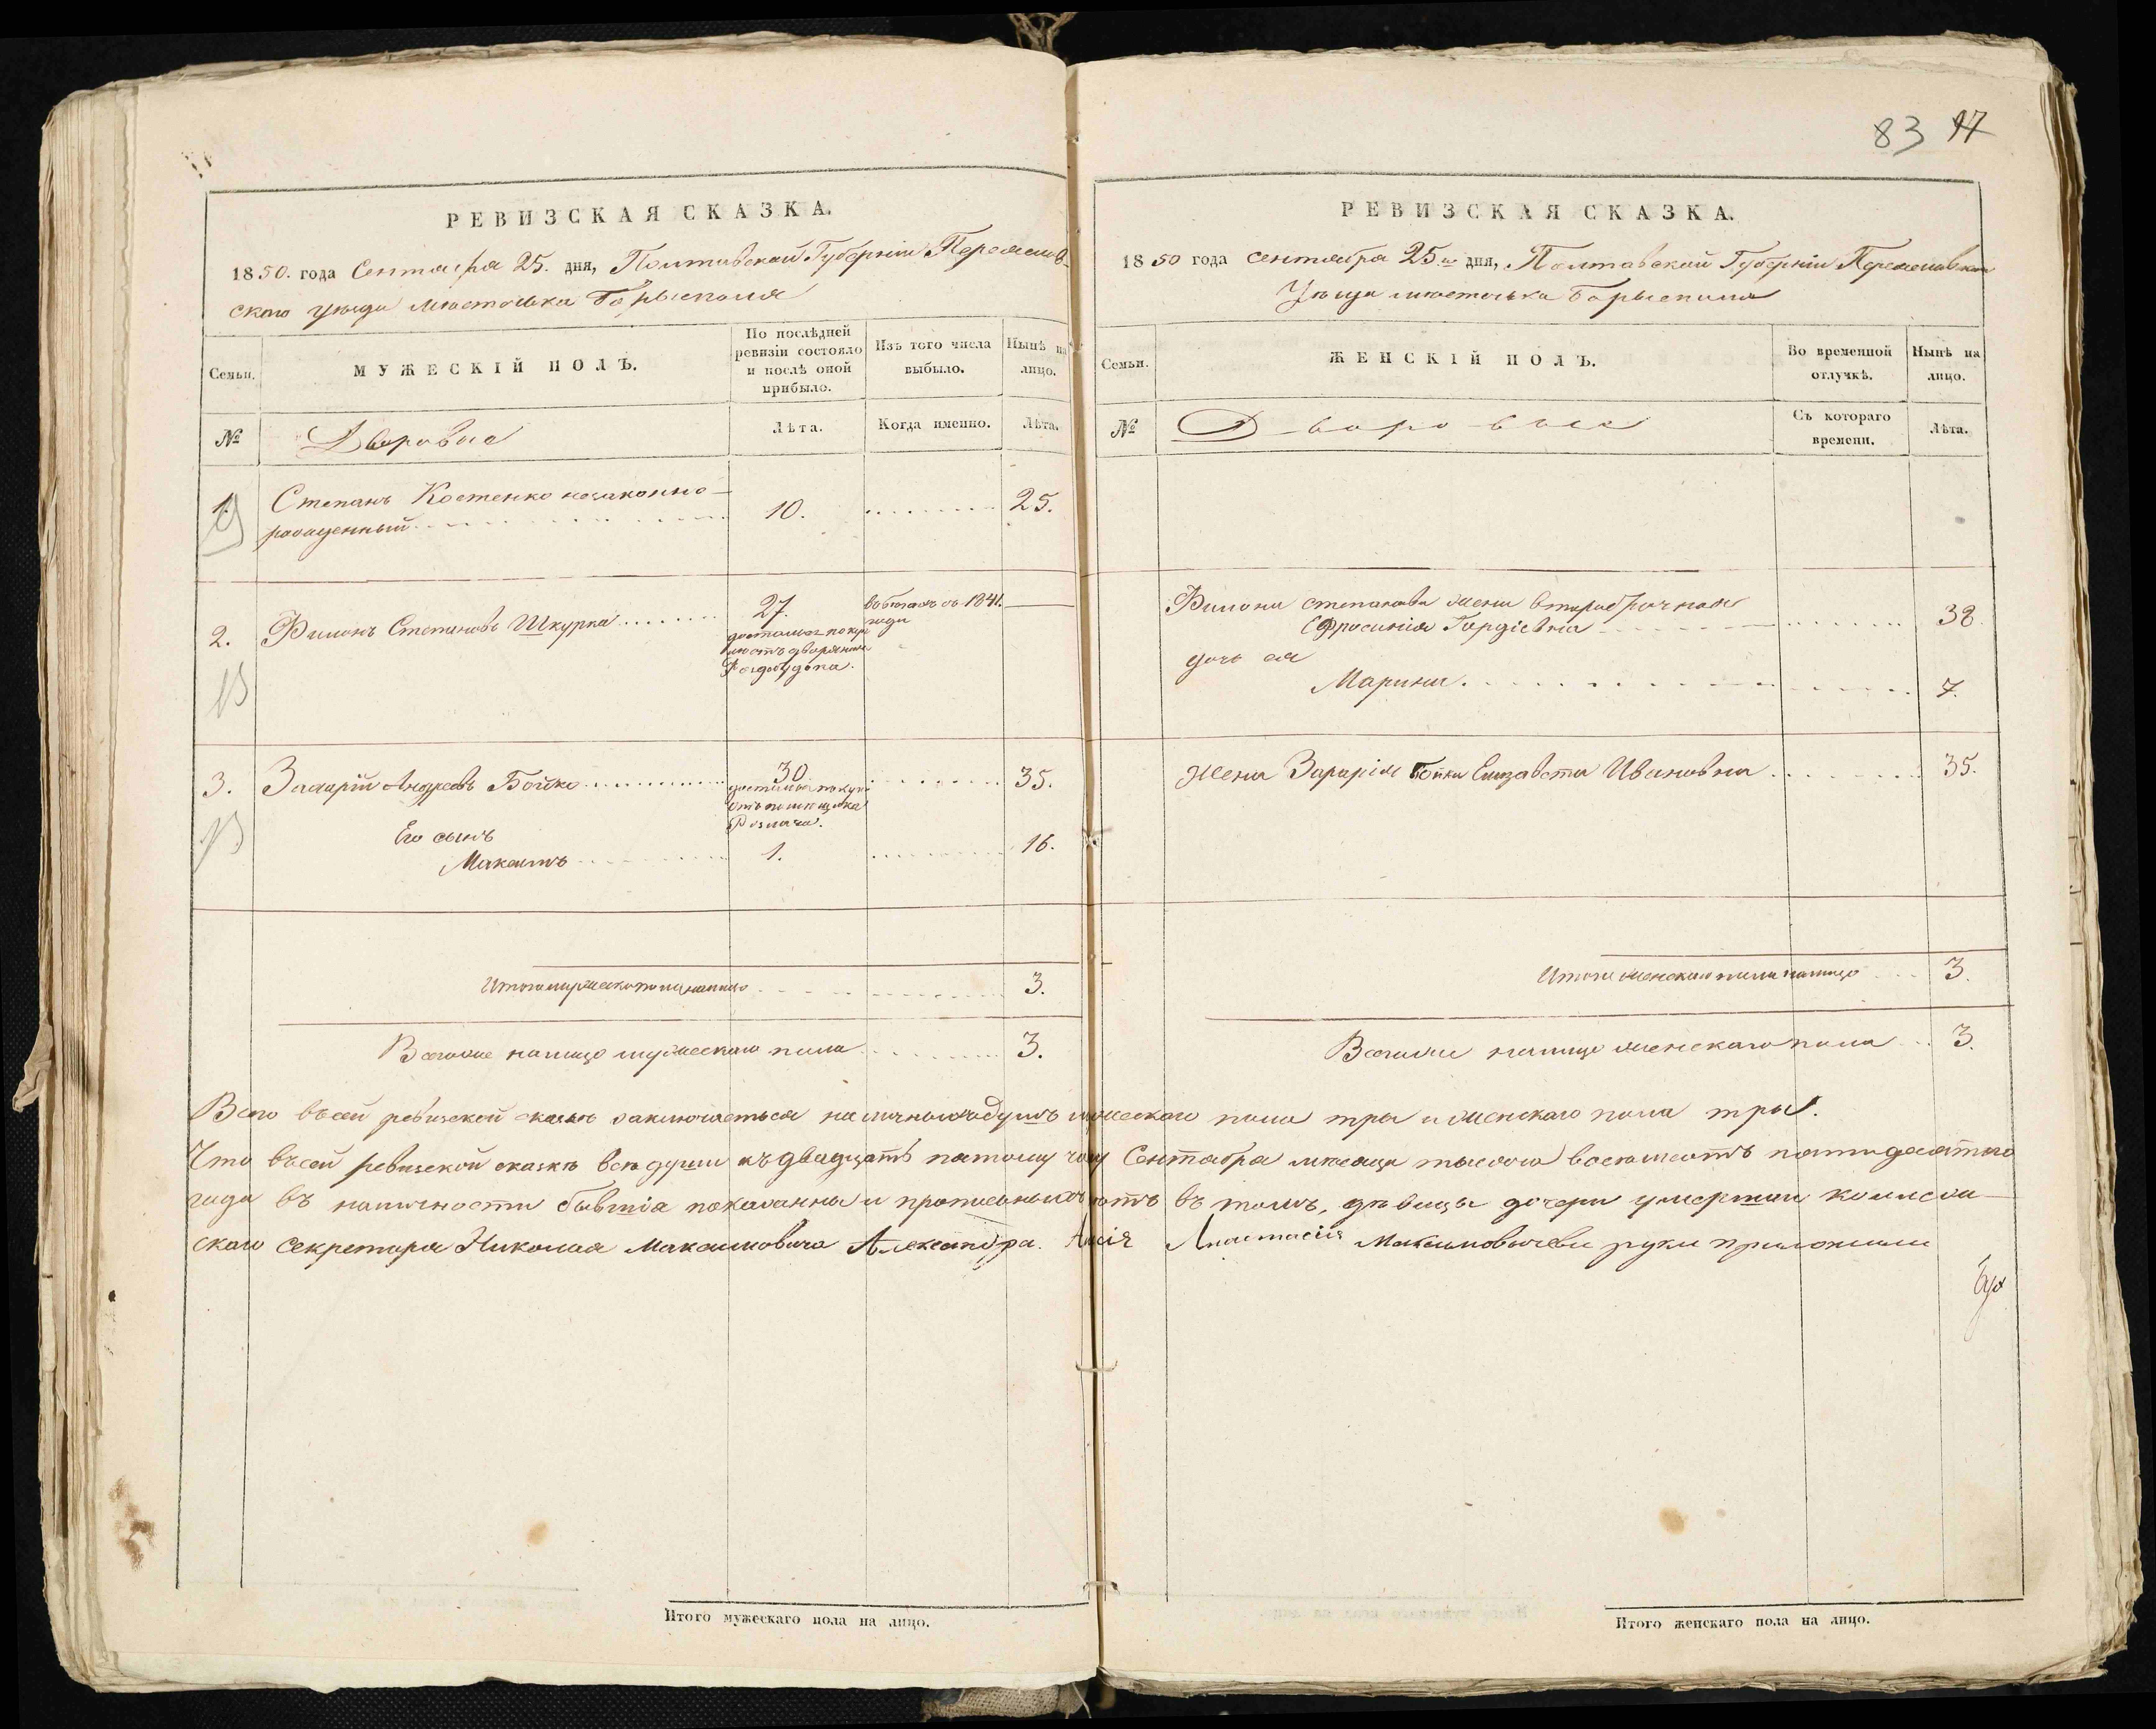 РЕВИЗСКАЯ СКАЗКА.
1850. года Сентября 25. дня, Полтавской Губерніи Переяслав-
ского уѣзда мѣстечька Борысполя
Семьи.
МУЖЕСКІЙ ПОЛЪ.
По послѣдней ревизіи состояло и послѣ оной прибыло.
Изъ того числа выбыло.
Нынѣ на лицо.
№
Дворовые
Лѣта.
Когда именно.
Лѣта.
1.
Степанъ Костенко незаконно-
рожденный
10.
25.
2.
Филонъ Степановъ Шкурка
27.
достался покуп
отъ дворянина
въ бегахъ съ 1841.
года
3.
Захарій Андреевъ Бойко
30
достался покуп
отъ помещика
35.
Его сынъ
Максимъ
1.
16.
Итого мужеска пола налицо
3.
Всегоже налицо мужескаго пола
3.
83 17
РЕВИЗСКАЯ СКАЗКА.
1850 года сентября 25го дня, Полтавской Губерніи Переяславскаго
Уѣзда мѣстечька Борысполя
Семьи.
ЖЕНСКІЙ ПОЛЪ.
Во временной отлучкѣ.
Нынѣ на лицо.
№
Дворовые
Съ котораго времени.
Лѣта.
Филона степанова жена второбрачная
Ефросинія Гордіевна
38.
дочь ея
Марина
7.
Жена Захарія Бойка Елизавета Ивановна
35.
Итого женскаго пола налицо
3.
Всегоже налицо женскаго пола
3.
Всего въсей ревизской сказкѣ заключаеться наличныхъ душъ мужескаго пола тры и женскаго пола тры.
Что въсей ревизской сказкѣ всѣ души къ двадцать пятому числу Сентября мѣсяца тысяча восемьсотъ пятидесятого
года въ наличности бывшія показанны и прописныхъ нѣтъ въ томъ, дѣвицы дочери умершаго колежс-
скаго секретаря Николая Максимовича Александра. Анастасія Максимовичевы руки приложили
Итого мужескаго пола на лицо.
Итого женскаго пола на лицо.